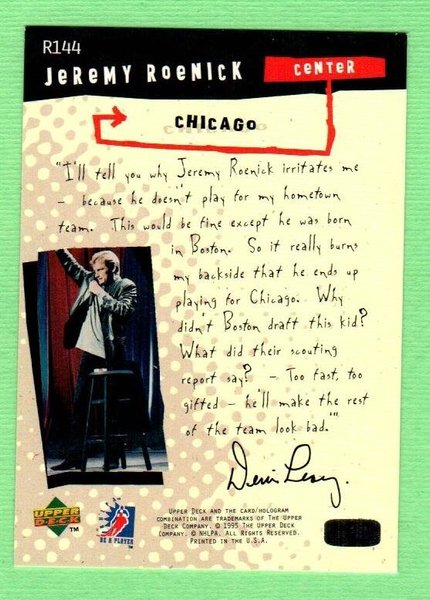 R144
JEREMY ROENICK
CENTER
CHICAGO
"I'll tell you why Jeremy Roenick irritates me
– because he doesn't play for my hometown
team. This would be fine except he was born
in Boston. So it really burns
my backside that he ends up
playing for Chicago. Why
didn't Boston draft this kid?
What did their scouting
report say? – Too fast, too
gifted – he'll make the rest
of the team look bad."
Denis Leary
UPPER DECK AND THE CARD/HOLOGRAM
COMBINATION ARE TRADEMARKS OF THE UPPER
DECK COMPANY. © 1995 THE UPPER DECK
COMPANY. © NHLPA. ALL RIGHTS RESERVED.
PRINTED IN THE U.S.A.
UPPER
DECK
TM
BE A PLAYER
TM